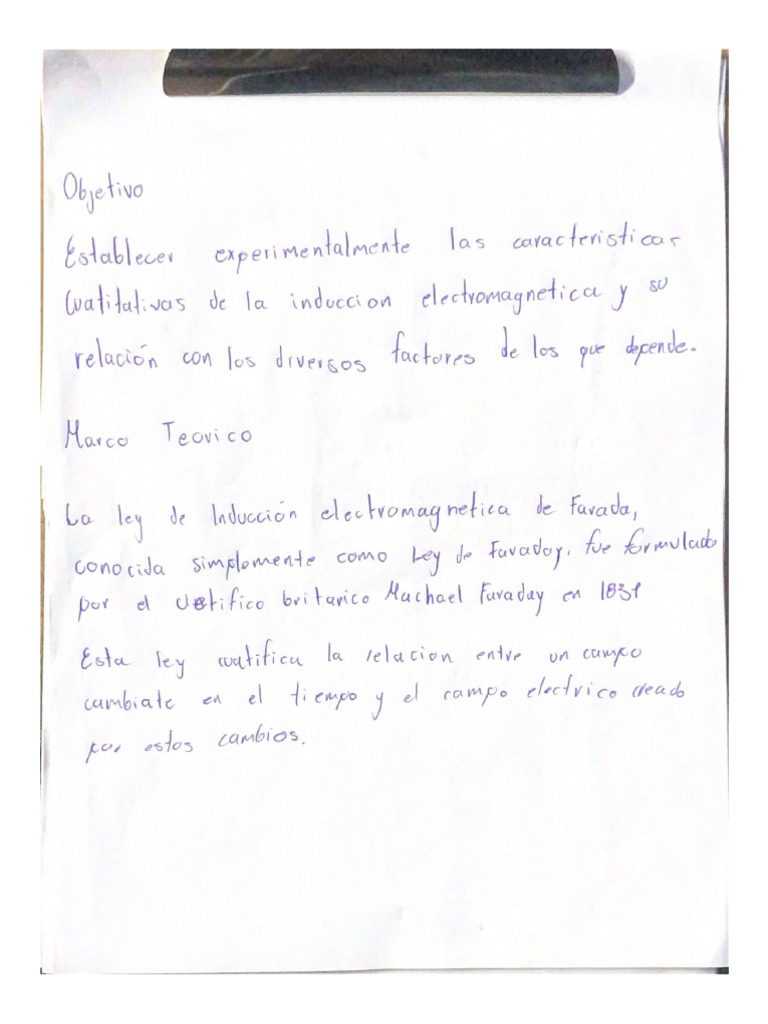 Objetivo
Establecer experimentalmente las caracteristicas
Cuatitativas de la induccion electromagnetica y su
relación con los diversos factores de los que depende.
Marco Teorico
La ley de Inducción electromagnetica de Farada,
conocida simplemente como Ley de Faraday, fue formulado
por el cietifico britarico Machael Faraday en 1831
Esta ley cuatifica la relacion entre un campo
cambiate en el tiempo y el campo electrico creado
por estos cambios.